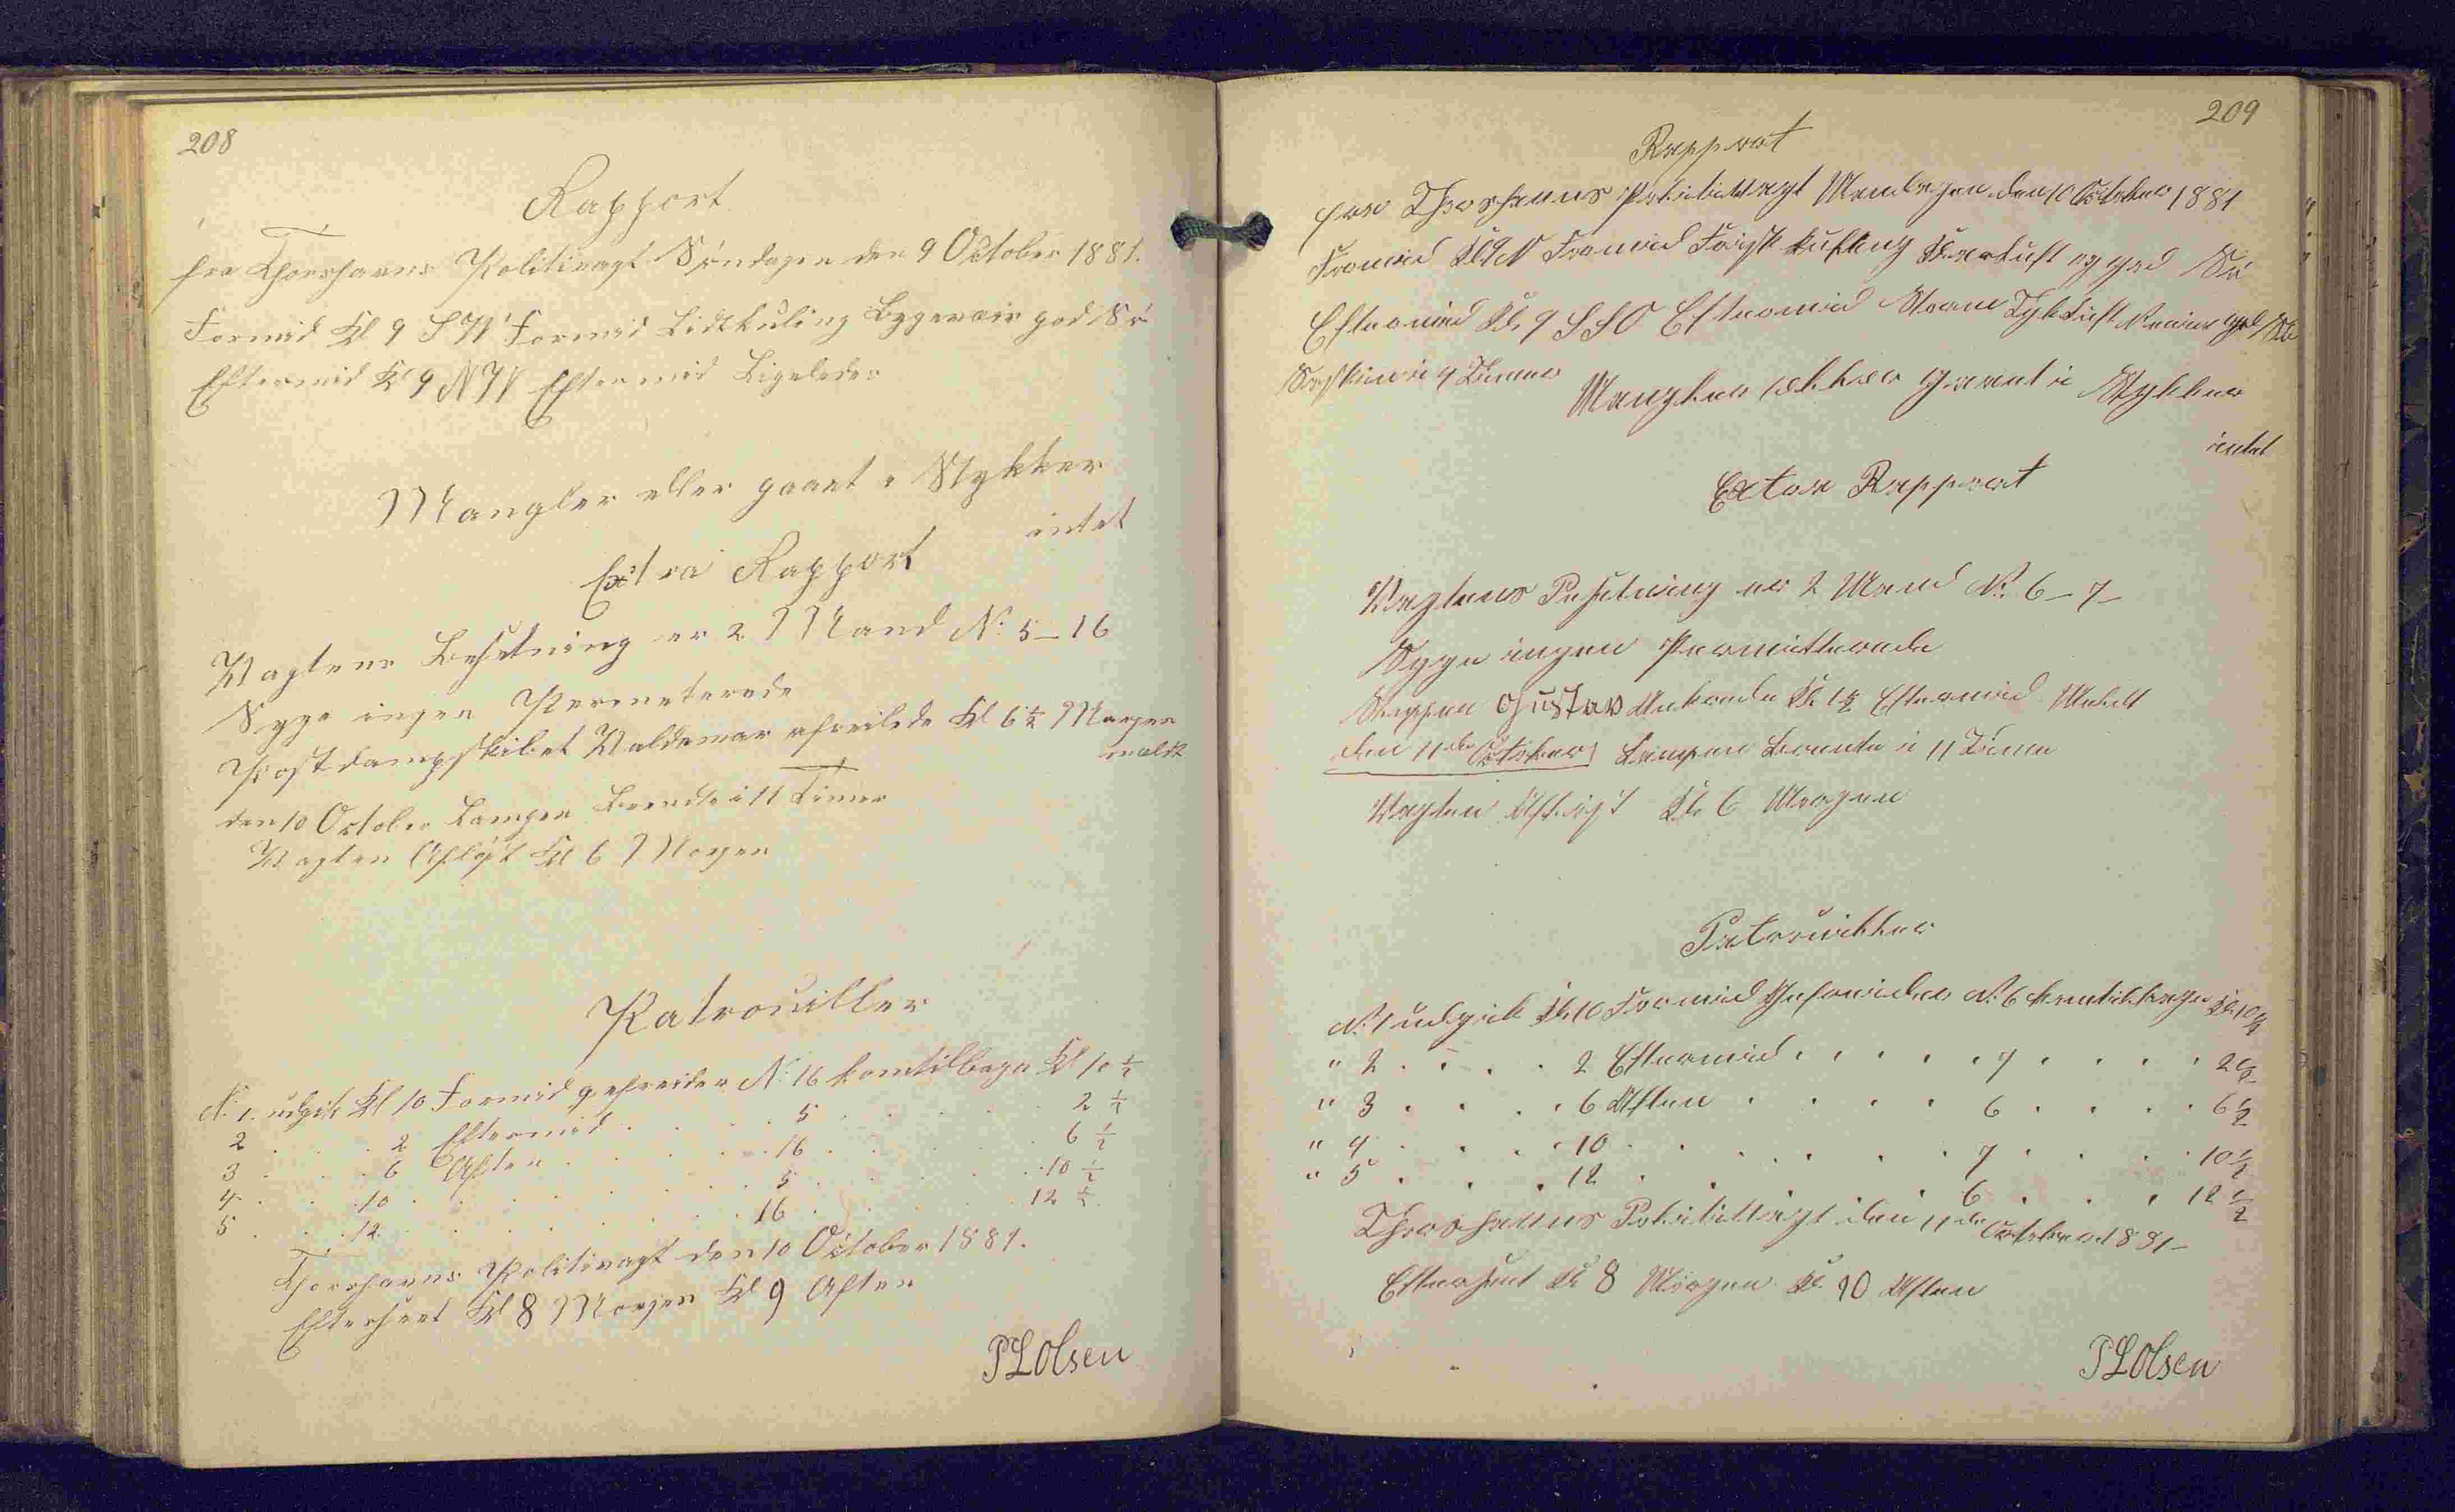 208
Rapport
fra Thorshavns Politivagt Søndagen den 9 October 1881.
Formid Kl 9 SW Formid Lidtkuling Bygeveir god Sø
Eftermid Kl 9 NW Eftermid Ligeledes
Mangler eller gaaet i Stykker
intet
Extra Rapport
Vagtens Besetning er 2 Mand No 5-16
Syge ingen Permeterede
Postdampskibet Valdemar afreiste Kl 6½ Morgen
meldt
den 10 October Lampen Brendte i 11 Timer
Vagten Afløst Kl 6 Morgen
Patrouiller
No 1. udgik Kl 10 Formid gefreider No 16 kom tilbage Kl 10 ½
2 . . . 2 Eftermid . . . . 5 . . . . 2 ½
3 . . . 6 Aften . . . . 16 . . . . 6 ½
4 . . . 10 . . . . . . 5 . . . . 10 ½
5 . . . 12 . . . . . . 16 . . . . 12 ½
Thorshavns Politivagt den 10 October 1881.
Efterseet Kl 8 Morgen Kl 9 Aften
PLOlsen
209
Rapport
fra Thorshavns Politivagt Mandagen den 10 October 1881
Formid Kl 9 N Formid Frisk kuling Klarluft og god Sø
Eftermid Kl. 9 SSO Eftermid Storm Tykluft Regn og Sø
i 4 Timer
Mangler eller gaaet i Stykker
intet
Extra Rapport
Vagtens Besetning er 2 Mand No. 6-7-
Syge ingen Permitterede
Skippen Gustav Ankrede Kl. 1½ Eftermid Meldt
den 11de October Lampen Brente i 11 Timer
Vagten Afløst Kl. 6 Morgen
Patrouiller
No. 1 udgik Kl. 10 Formid Gefreider No. 6 kom tilbage Kl. 10½
" 2 . . . . 2 Eftermid . . . . . 7 . . . . . 2½
" 3 . . . . 6 Aften . . . . . 6 . . . . 6½
" 4 . . . . 10 . . . . . . 7 . . . . 10½
" 5 . . . . 12 . . . . . 6 . . . . 12½
Thorshavns Politivagt den 11de October 1881-
Efterseet Kl 8 Morgen Kl. 10 Aften
PLOlsen